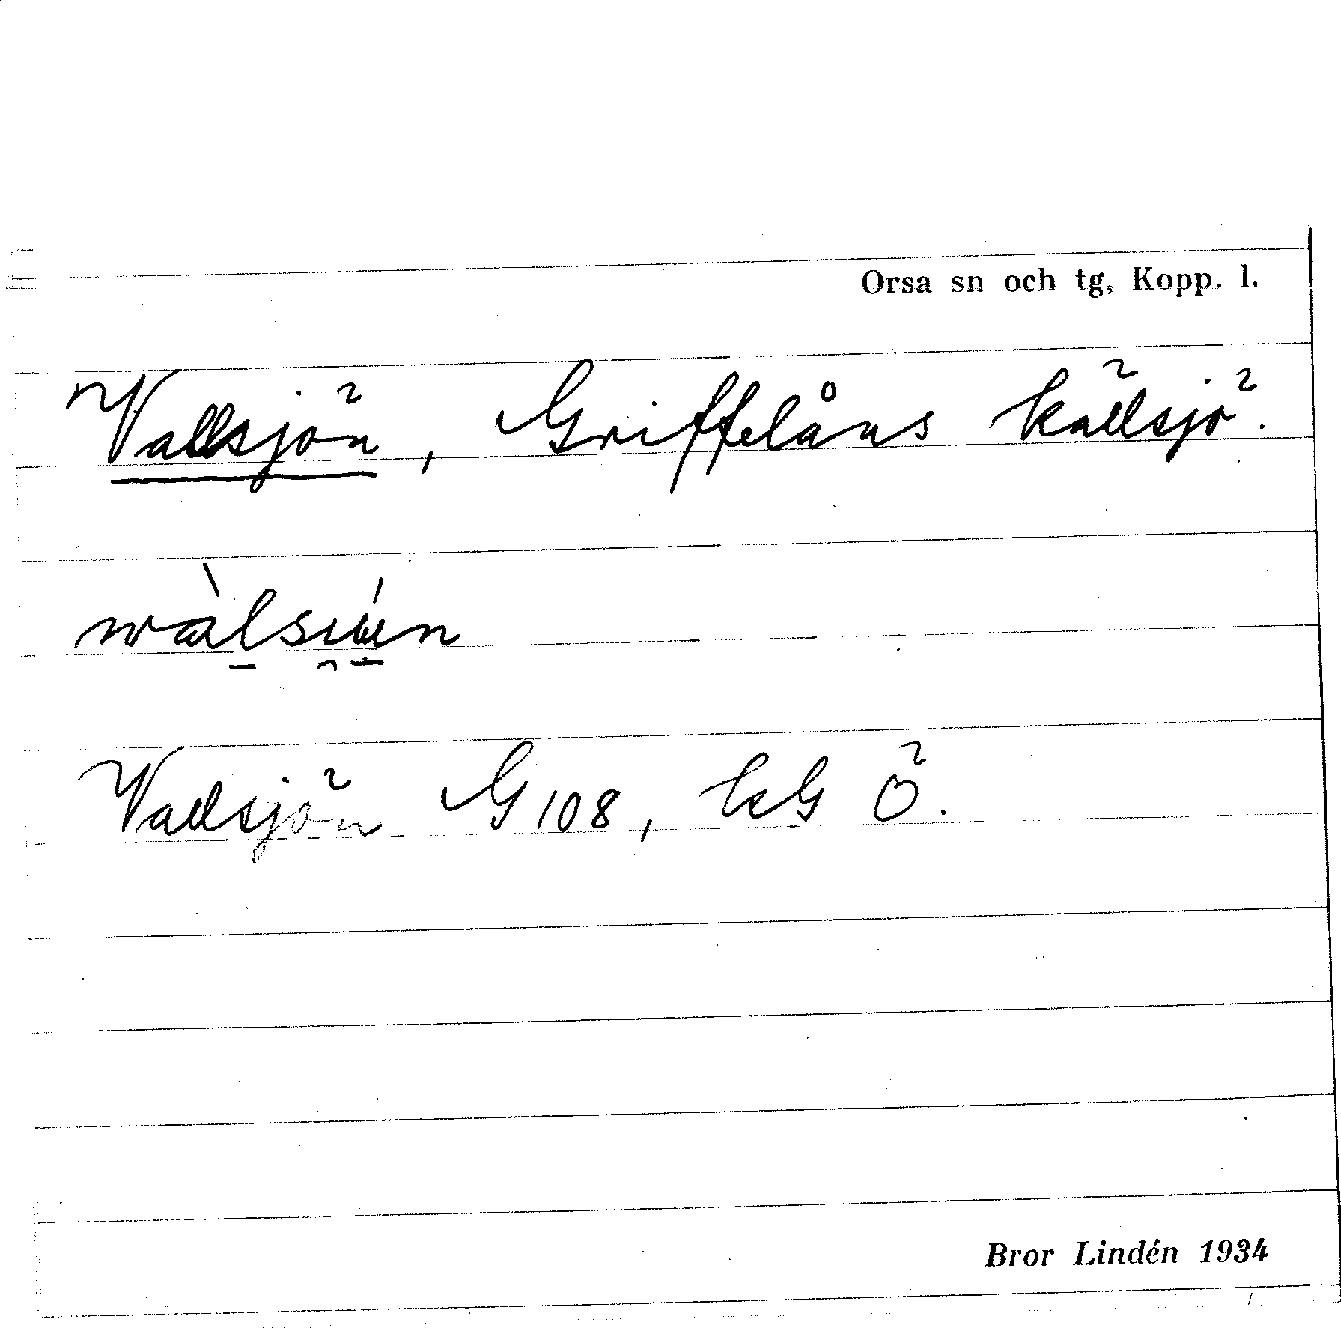 Orsa sn och tg, Kopp. l.
Vallsjön, Griffelåns källsjö.
Vallsjön G 108, kG Ö.
Bror Lindén 1934